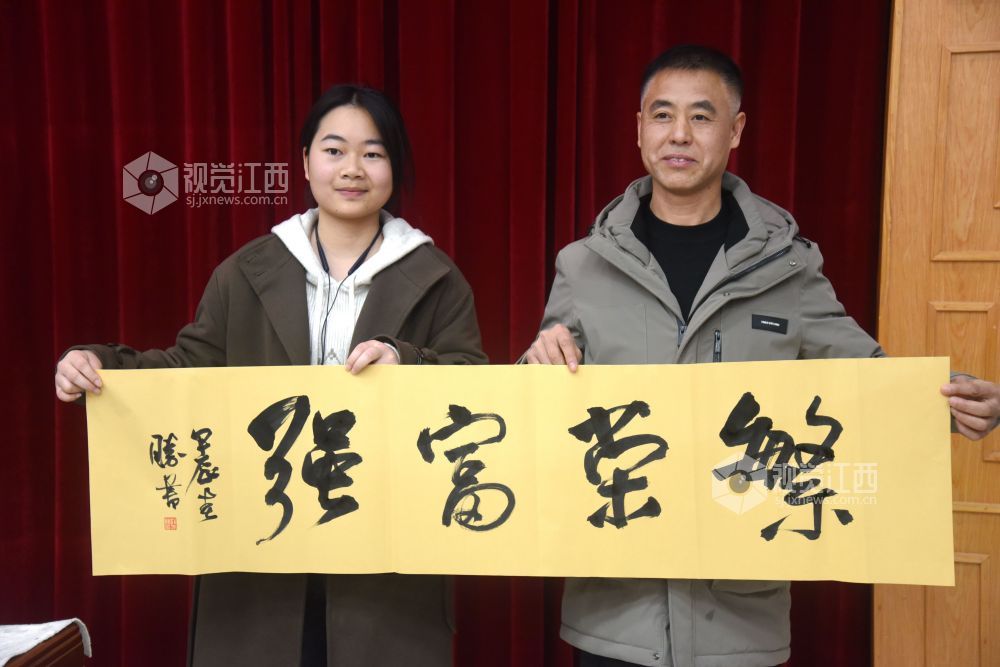 繁荣富强
甲辰年
胜书
视觉江西
sj.jxnews.com.cn
视觉江西
sj.jxnews.com.cn